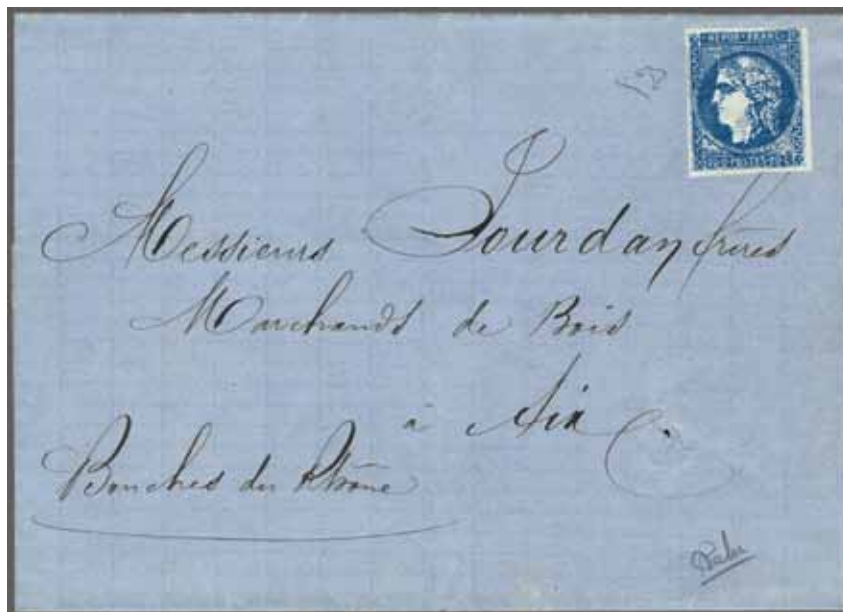 REPUB. FRANC.
20 POSTES 20
Messieurs Jourdan frères
Marchands de Bois
à Aix
Bouches du Rhône